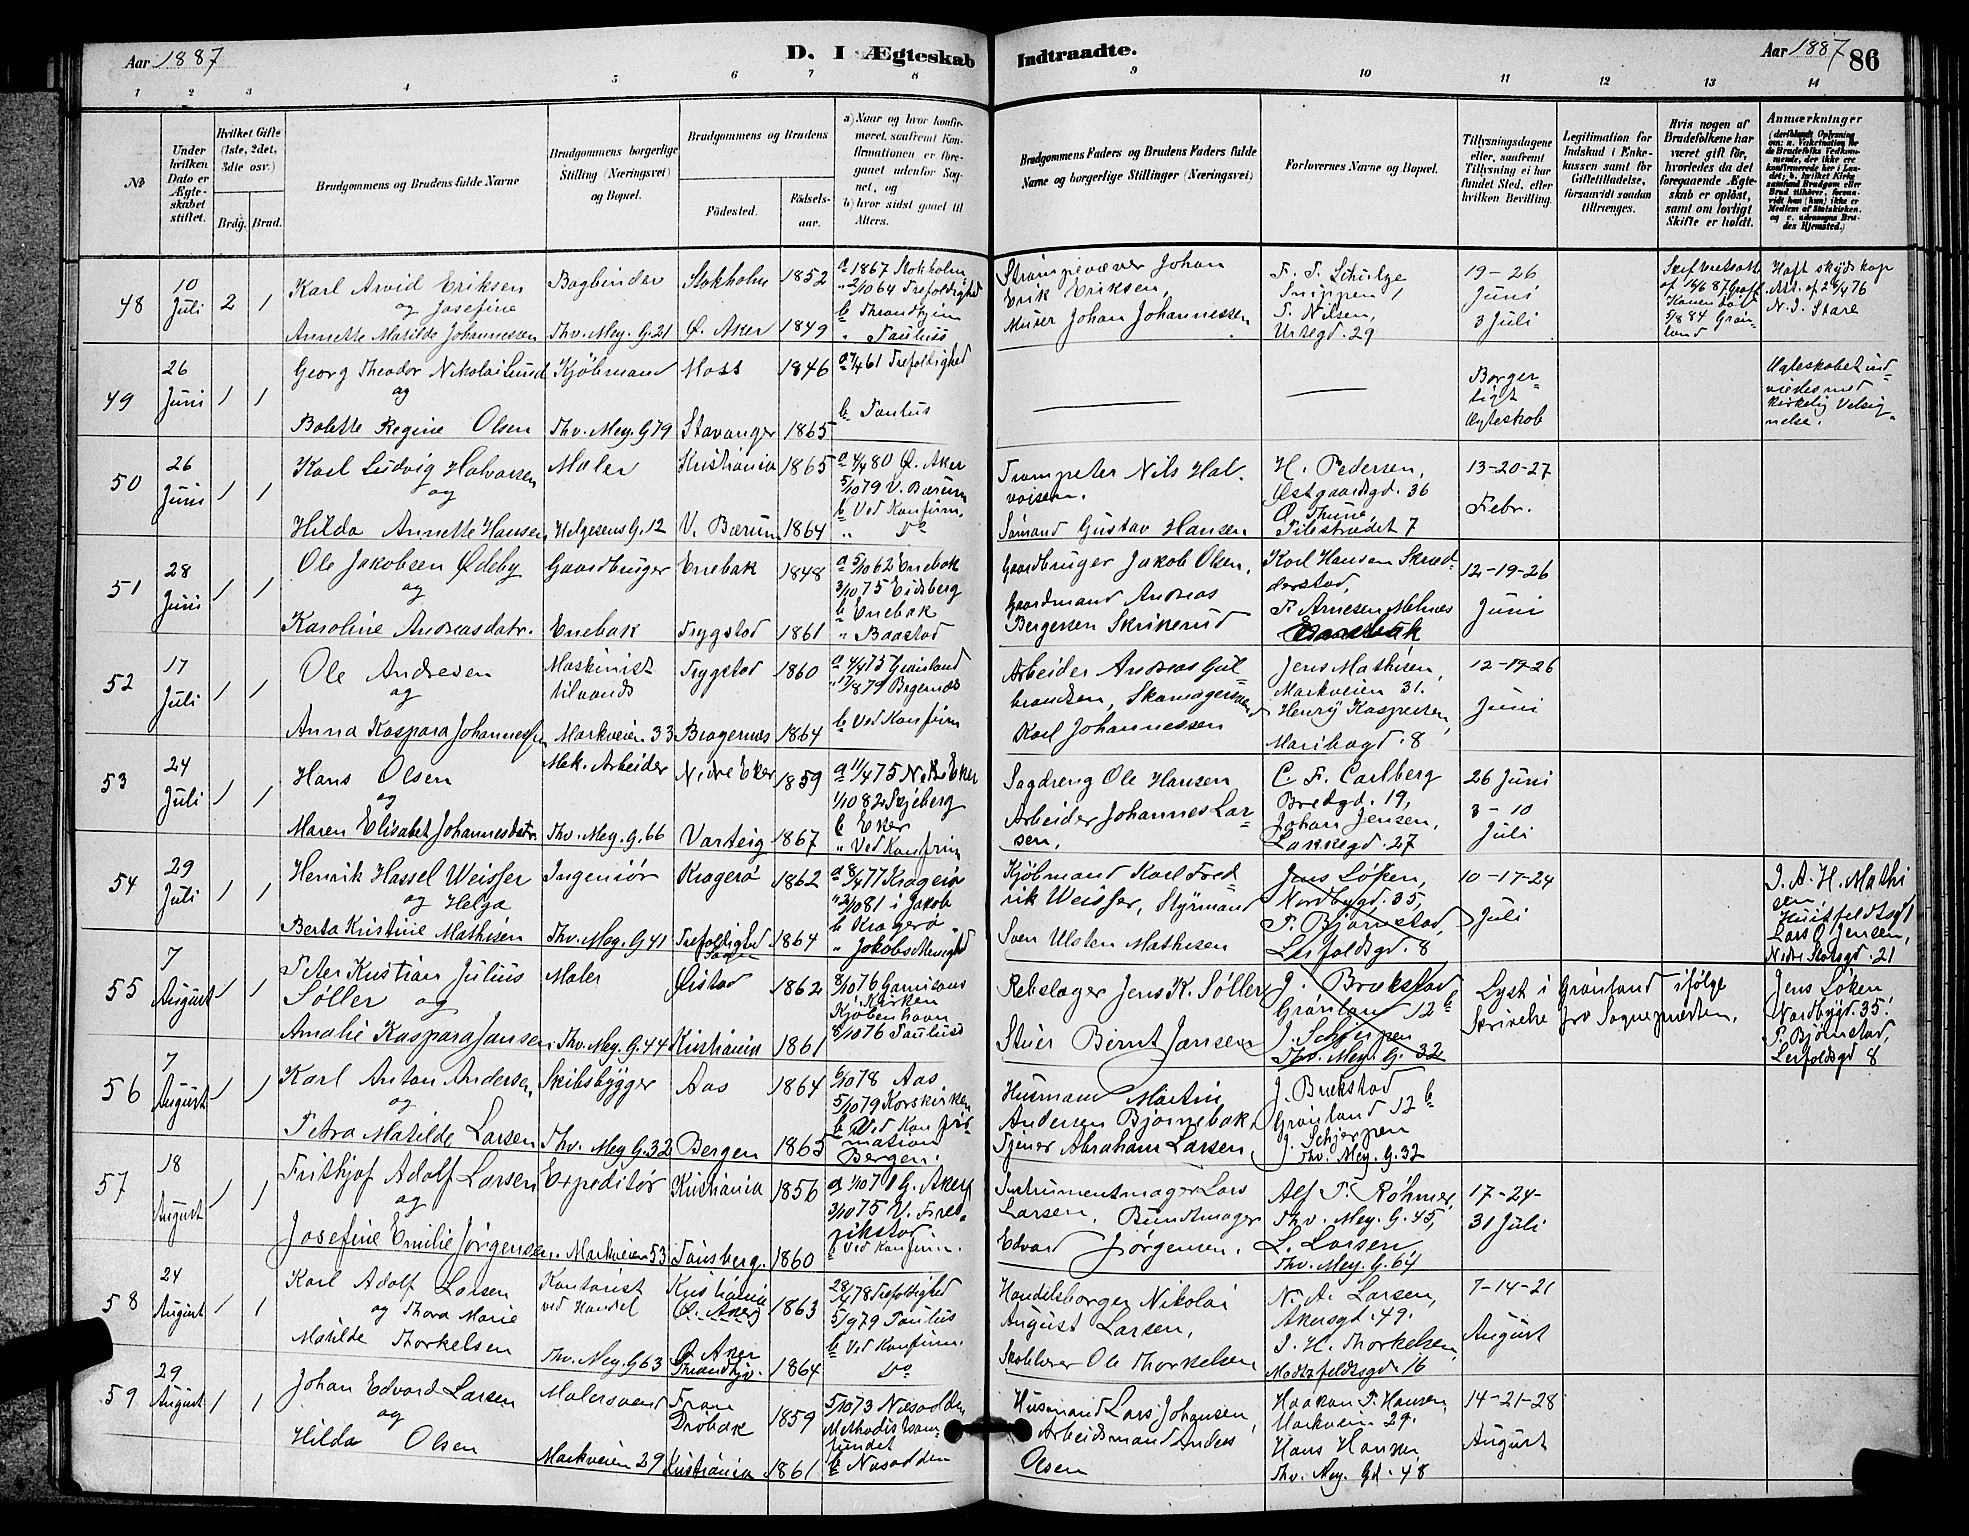 Aar 1887
D. I Ægteskab
Indtraadte.
Aar 1887
86
1 2 3 4 5 6 7 8 9 10 11 12 13 14
No
Under hvilken Dato er Ægteskabet stiftet.
Hvilket Gifte (1ste, 2det, 3die osv.)
Brdg. Brud.
Brudgommens og Brudens fulde Navne
Brudgommens borgerlige Stilling (Næringsvei) og Bopæl.
Brudgommens og Brudens
Fødested.
Fødsels-aar.
a) Naar og hvor konfirmeret, saafremt Konfirmationen er foregaaet udenfor Sognet, og
b) hvor sidst gaaet til Alters.
Brudgommens Faders og Brudens Faders fulde Navne og borgerlige Stillinger (Næringsvei)
Forlovernes Navne og Bopæl.
Tillysningsdagene eller, saafremt Tillysning ei har fundet Sted, efter hvilken Bevilling.
Legitimation for Indskud i Enkekassen samt for Giftetilladelse, forsaavidt saadan tiltrænges.
Hvis nogen af Brudefolkene har været gift før, hvorledes da det foregaaende Ægteskab er opløst, samt om lovligt Skifte er holdt.
Anmærkninger
48
10 Juli
2 1
Karl Arvid Eriksen
og Josefine
Annette Matilde Johannessen
Bogbinder
Thv. Mey. G. 21
Stokholm 1852
Ø. Aker 1849
a 1867 Stokholm
" 2/10 64 Trefoldighed
b Throndhjem
" Paulus
Strømpevæver Johan
Erik Eriksen,
Murer Johan Johannessen
F. T. Schulze
Snippen 1
T. Nilsen,
Urtegd. 29
19-26
Juni
3 Juli
N. J. Stare
49
26 Juni
1 1
Georg Theodor Nikolai Lund
og
Bolette Regine Olsen
Kjøbmand
Thv. Mey. G 79
Moss 1846
Stavanger 1865
Trefoldighed
b Paulus
Borger-
ligt
Ægteskab
Ægteskabet ind-
viedes med
kirkelig Velsig-
nelse.
50
26 Juni
1 1
Karl Ludvig Halvorsen
og
Hilda Annette Hansen
Maler
Helgesens G. 12
Kristiania 1865
V. Bærum 1864
a 4/4 80 Ø. Aker
5/10 79 V. Bærum
b Ved Konfirm.
" Do
Trompeter Nils Hal-
vorsen.
Sømand Gustav Hansen
H. Pedersen,
Østgaardsgd. 36
O. Thune,
Pilestrædet 7
13-20-27
Febr.
51
28 Juni
1 1
Ole Jakobsen Ødeby
og
Karoline Andreasdatr.
Gaardbruger
Enebak
Enebak 1848
Trygstad 1861
a 5/10 62 Enebak
3/10 75 Eidsberg
b Enebak
" Baastad
Gaardbruger Jakob Olsen,
Gaardmand Andreas
Bergersen Skrikerud
Karl Hansen Skræd-
derstad,
F. Arnesen Melnæs
12-19-26
Juni
52
17 Juli
1 1
Ole Andresen
og
Anna Kaspara Johannessen
Maskinist
tilvands
Markveien 33
Trygstad 1860
Bragernæs 1864
a 4/4 75 Grønland
" 17/8 79 Bragernæs
b Ved Konfirm
Arbeider Andreas Gul-
brandsen, Skomagersvend
Karl Johannessen
Jens Mathisen,
Markveien 31.
Henry Kaspersen,
Maribogd. 8
12-19-26
Juni
53
24 Juli
1 1
Hans Olsen
og
Maren Elisabet Johannesdatr.
Mek. Arbeider
Thv. Mey. G. 66
Nedre Eker 1859
Varteig 1867
a 11/4 75 N. Eker
1/10 82 Skjeberg
b Eker
" Ved Konfirm
Sagdreng Ole Hansen
Arbeider Johannes Lar-
sen.
C. F. Carlberg
Bredgd. 19,
Johan Jensen,
Lakkegd. 27
26 Juni
3-10
Juli
54
29 Juli
1 1
Henrik Hassel Weisser
og Helga
Berta Kristine Mathisen
Ingeniør
Thv. Mey. G 41
Kragerø 1862
Trefoldighed
Sogn 1864
a 8/4 77 Kragerø
" 2/10 81 i Jakob
b Kragerø
" Jakobs Menighed
Kjøbmand Karl Fred-
rik Weisser, Styrmand
Sven Ulsten Mathisen
Jens Løken,
Nordbygd. 35,
P. Bjørnstad,
Leirfaldsgd. 8
10-17-24
Juli
J. A. H. Mathi
sen
Huitfeldtsgd
Lars O. Jensen,
Nedre Slotsgd. 21
55
7 August
1 1
Peter Kristian Julius
Søller og
Amalie Kaspara Jansen
Maler
Thv. Mey. G. 44
1862
Kristiania 1861
8/10 76 Garnisons
Kirken
Kjøbenhavn
8/10 76 Paulus
Rebslager Jens K. Søller
Stuer Bernt Jansen
J. Brækstad
Grønland 12 b
J. Schjerpen
Thv. Mey. G. 32
Lyst i Grønland ifølge
Skrivelse fra Sognepræsten.
Jens Løken
Nordbygd. 35.
P. Bjørnstad,
Leirfaldsgd 8
56
7 August
1 1
Karl Anton Andersen
og
Petra Matilde Larsen
Skibsbygger
Thv. Mey G. 32
Aas 1864
Bergen 1865
6/10 78 Aas
5/10 79 Korskirken
b Ved Konfir-
mation
Bergen.
Husmand Martin
Andersen Bjørnebak,
Tjener Abraham Larsen,
J. Brækstad
Grønland 12 b
J. Schjerpen
Thv. Mey. G. 32
57
18 August
1 1
Frithjof Adolf Larsen
og
Josefine Emilie Jørgensen
Expeditør
Markveien 53
Kristiania 1856
Tønsberg. 1860
a 1/10 71 G. Akers
3/10 75 V. Fred-
rikstad
b Ved Konfirm.
Instrumentmager Lars
Larsen, Buntmager
Edvard Jørgensen.
Alf T. Røhmer,
Thv. Mey. G. 45,
L. Larsen
Thv. Mey. G. 64
17-24-
31 Juli
58
24 August
1 1
Karl Adolf Larsen
og Thora Marie
Matilde Thorkelsen
Kontorist
ved Handel
Thv. Mey. G 63
Kristiania
(Ø. Aker) 1863
Ø. Aker
Throndhjv. 1864
Trefoldighed
5/9 79 Paulus
b Ved Konfirm.
Do
Handelsborger Nikolai
August Larsen,
Skolelærer Ole Thorkelsen
N. A. Larsen,
Akersgd. 49.
J. H. Thorkelsen,
Motzfeldtsgd. 16
7-14-21
August
59
29 August
1 1
Johan Edvard Larsen
og
Hilda Olsen
Malersvend
Markveien 29
Fron
Drøbak 1859
Kristiania 1861
5/10 73 Næsodden
Methodistsam-
fundet
b Næsodden
Husmand Lars Johansen,
Arbeidsmand Anders
Olsen
Haakon T. Hansen,
Markveien 29.
Hans Hansen
Thv. Mey. Gd. 48
14-21-28
August